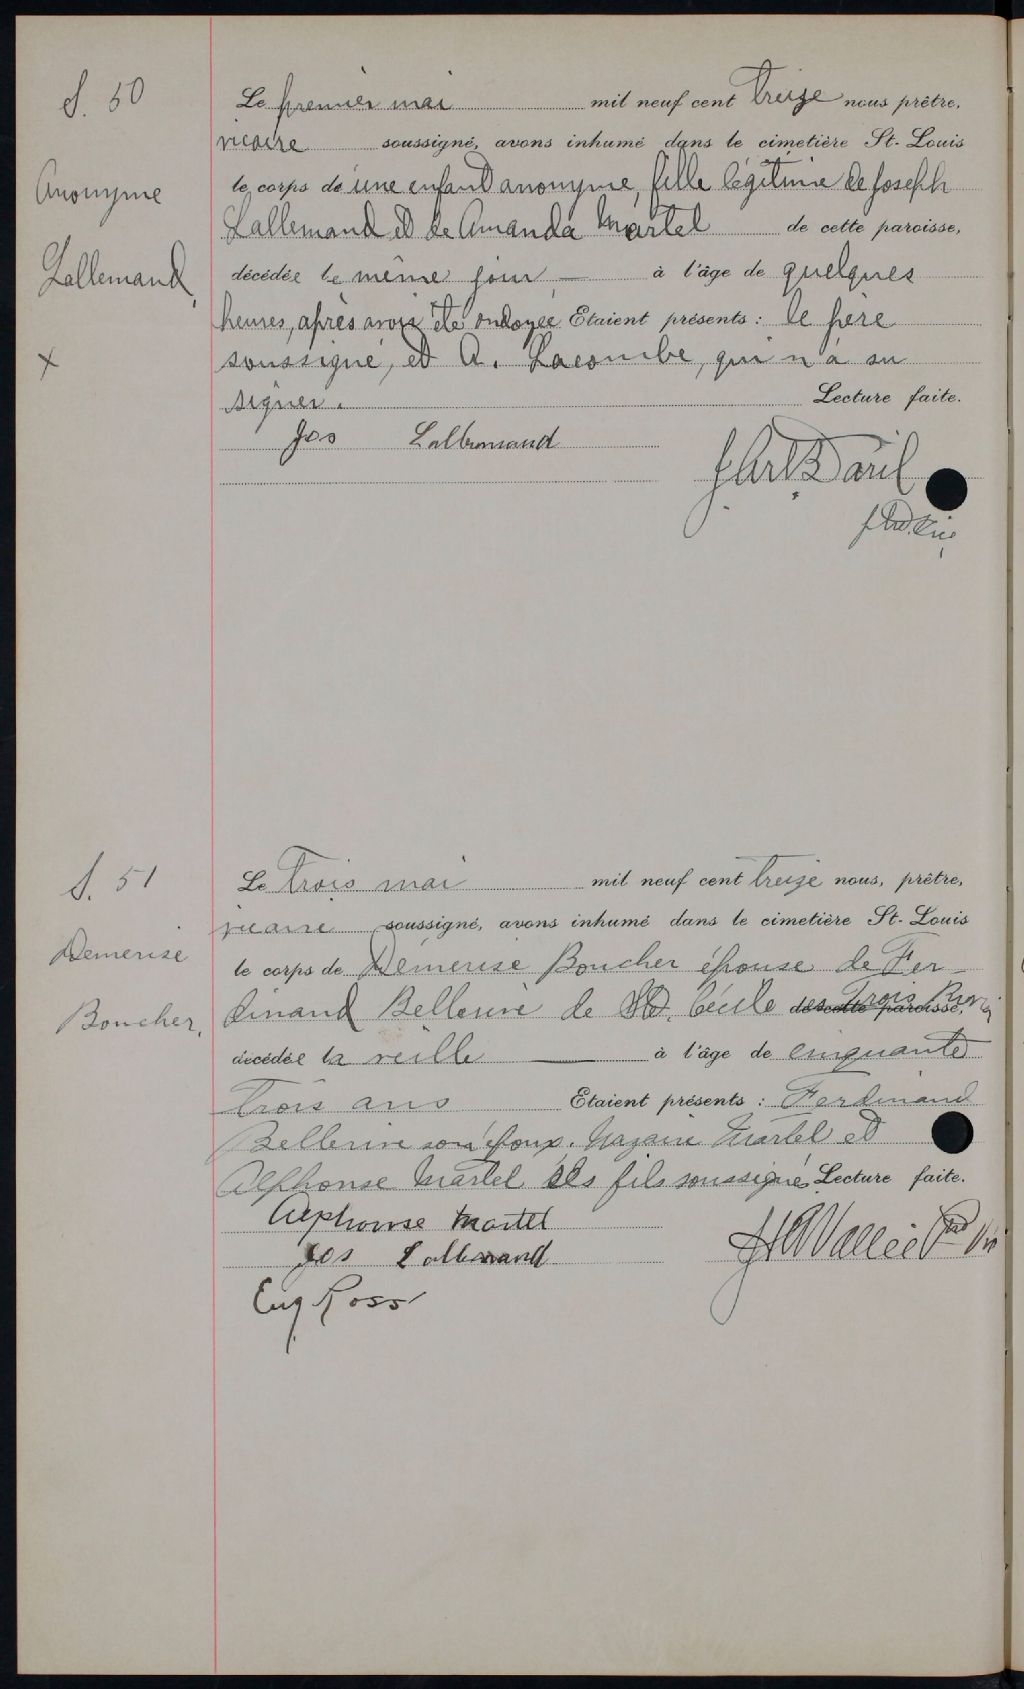 S. 50
Le premier mai mil neuf cent treize nous prêtre,
vicaire soussigné, avons inhumé dans le cimetière St-Louis
Anonyme
le corps de une enfant anonyme, fille légitime de Joseph
Lallemand et de Amanda Martel de cette paroisse,
Lallemand,
décédée le même jour à l'âge de quelques
heures, après avoir été ondoyée Etaient présents : le père
X
soussigné, et A. Lacombe, qui n'a su
signer. Lecture faite.
Jos Lallemand
S. 51
Le trois mai mil neuf cent treize nous, prêtre,
vicaire soussigné, avons inhumé dans le cimetière St-Louis
Demerise
le corps de Démerise Boucher épouse de Fer-
Boucher,
dinand Bellerive de Cécile de cette paroisse, Trois Riv.
décédée la veille à l'âge de cinquante
trois ans Etaient présents : Ferdinand
Bellerive son époux, Nazaire Martel et
Alphonse Martel fils soussignés Lecture faite.
Alphonse Martel
Jos Lallemand
Eug Ross